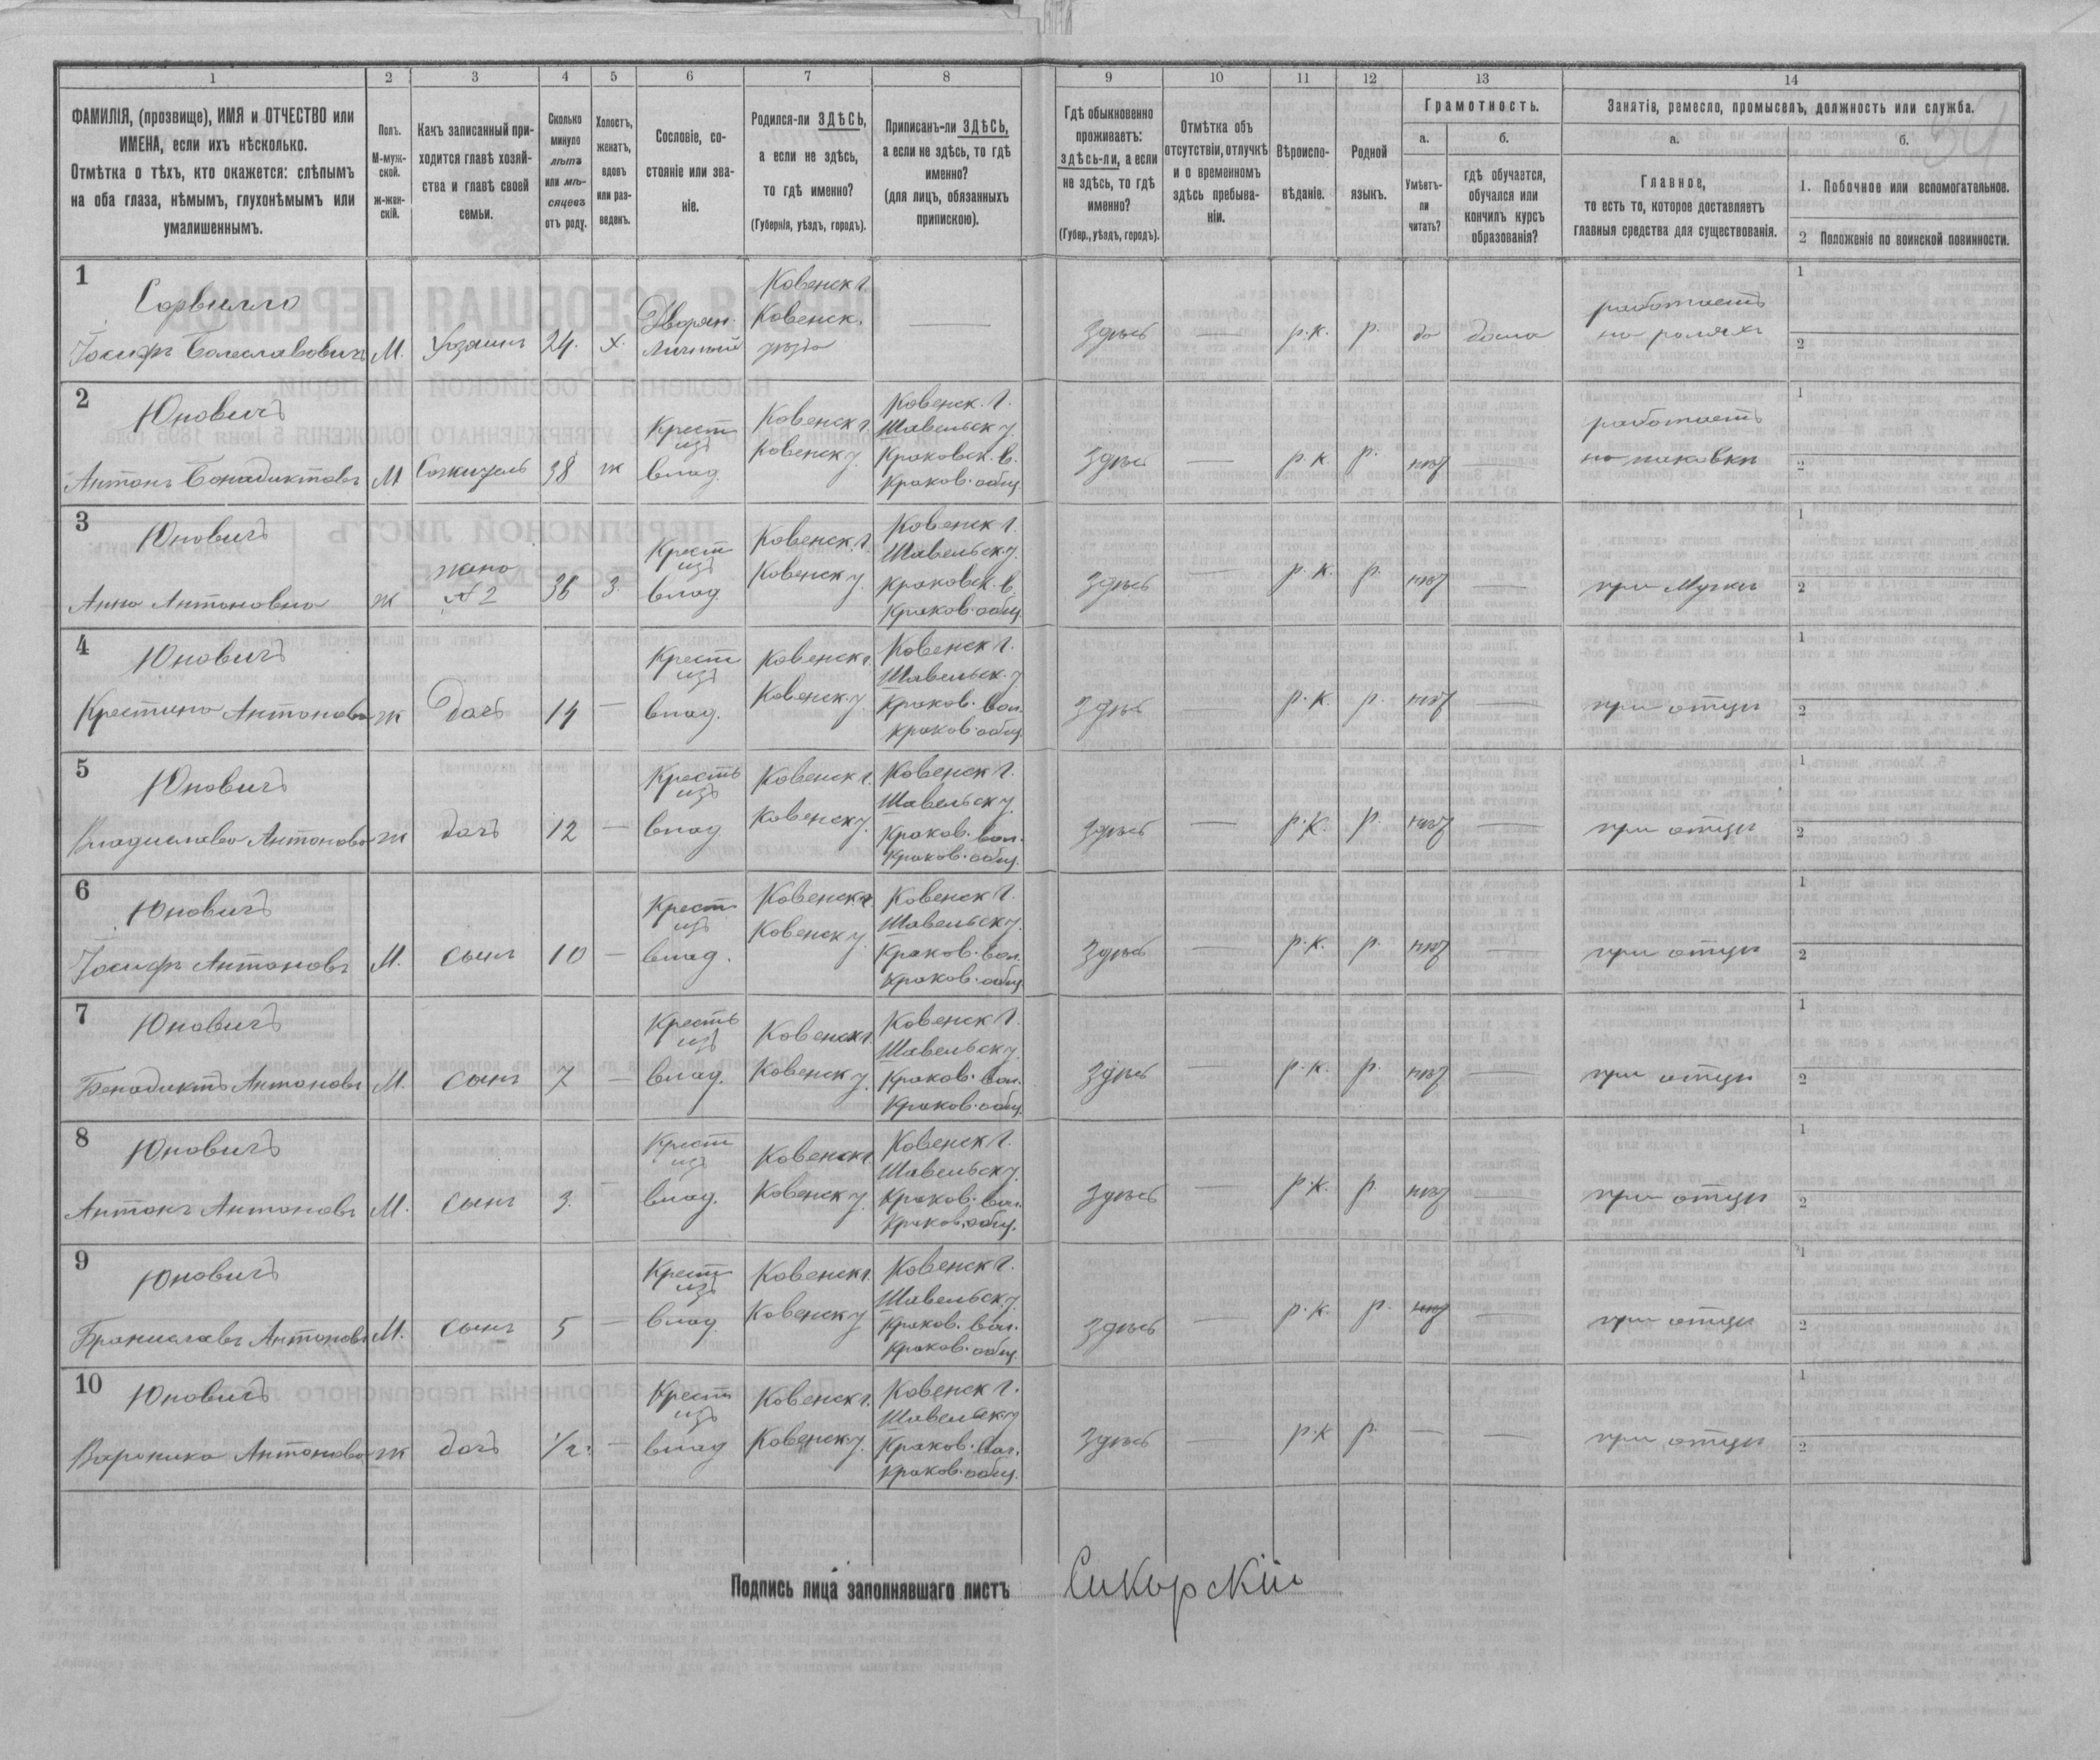 1 2 3 4 5 6 7 8 9 10 11 12 13 14
ФАМИЛІЯ, (прозвище), ИМЯ и ОТЧЕСТВО или
ИМЕНА, если ихъ нѣсколько.
Отмѣтка о тѣхъ, кто окажется: слѣпымъ
на оба глаза, нѣмымъ, глухонѣмымъ или
умалишеннымъ.
Полъ.
М-муж-
ской.
ж-жен-
скій.
Какъ записанный при-
ходится главѣ хозяй-
ства и главѣ своей
семьи.
Сколько
минуло
лѣтъ
или мѣ-
сяцевъ
отъ роду.
Холостъ,
женатъ,
вдовъ
или раз-
веденъ.
Сословіе, со-
стояніе или зва-
ніе.
Родился-ли ЗДѢСЬ,
а если не здѣсь,
то гдѣ именно?
(Губернія, уѣздъ, городъ).
Приписанъ-ли ЗДѢСЬ,
а если не здѣсь, то гдѣ
именно?
(для лицъ, обязанныхъ
припискою).
Гдѣ обыкновенно
проживаетъ:
здѣсь-ли, а если
не здѣсь, то гдѣ
именно?
(Губер., уѣздъ, городъ).
Отмѣтка объ
отсутствіи, отлучкѣ
и о временномъ
здѣсь пребыва-
ніи.
Вѣроиспо-
вѣданіе.
Родной
языкъ.
Грамотность.
а.
Умѣетъ-
ли
читать?
б.
гдѣ обучается,
обучался или
кончилъ курсъ
образованія?
Занятіе, ремесло, промыселъ, должность или служба.
а.
Главное,
то есть то, которое доставляетъ
главныя средства для существованія.
б.
1. Побочное или вспомогательное.
2 Положеніе по воинской повинности.
1
Іосифъ Болеславовичъ М. Хозяинъ 24. х. Дворян. личный
Ковенск г.
Ковенск.
Здѣсь — р.к. р. да дома
работаетъ
1
2
2 Юновичъ
Антонъ Бенадиктовъ М 38 ж
Крест
изъ
влад.
Ковенск г.
Ковенск у.
Ковенск. г.
Шавельск у
Краковск. в.
Краков. общ
Здѣсь — р.к. р. нѣт —
работаетъ
1
2
3 Юновичъ
Анна Антоновна ж
жена
№ 2
36 З.
Крест
изъ
влад
Ковенск. г.
Ковенск у.
Ковенск г.
Шавельск. у.
Краковск. в.
Краков. общ
Здѣсь — р.к. р. нѣт —
при Мужѣ
1
2
4 Юновичъ
Крестина Антонова ж дочь 14 —
Крест
изъ
влад.
Ковенск г.
Ковенск у.
Ковенск г.
Шавельск. у
Краков. вол.
Краков. общ
Здѣсь — р.к. р. нѣт —
при отцѣ
1
2
5 Юновичъ
Владислава Антонова ж дочь 12 —
Кресть
изъ
влад
Ковенск г.
Ковенск у.
Ковенск г.
Шавельск у.
Краков. вол.
Краков. общ.
Здѣсь — р.к. р. нѣт —
при отцѣ
1
2
6 Юновичъ
Іосифъ Антоновъ М. сынъ 10 —
Крест
изъ
влад.
Ковенск г.
Ковенск у.
Ковенск г.
Шавельск у.
Краков. вол.
Краков. общ
Здѣсь — р.к. р. нѣт —
при отцѣ
1
2
7 Юновичъ
Бенадиктъ Антоновъ М. сынъ 7 —
Кресть
изъ
влад.
Ковенск г.
Ковенск у.
Ковенск г.
Шавельск у.
Краков. вол.
Краков. общ.
Здѣсь — р.к. р. нѣт —
при отцѣ
1
2
8 Юновичъ
Антонъ Антоновъ М. сынъ 3. —
Крест
изъ
влад.
Ковенск г.
Ковенск у.
Ковенск г.
Шавельск у.
Краков. вол.
Краков. общ.
Здѣсь — р.к. р. нѣт —
при отцѣ
1
2
9 Юновичъ
Брониславъ Антоновъ М. сынъ 5 —
Крест
изъ
влад.
Ковенск г.
Ковенск у
Ковенск г.
Шавельск у.
Краков. вол.
Краков. общ.
Здѣсь — р.к. р. нѣт —
при отцѣ
1
2
10 Юновичъ
Вароника Антонова ж дочь 1/2 —
Крест
изъ
влад
Ковенск г.
Ковенск у.
Ковенск г.
Шавельск у
Краков. вол.
Краков. общ.
Здѣсь — р.к р. — —
при отцѣ
1
2
Подпись лица заполнявшаго листъ Сикорскій